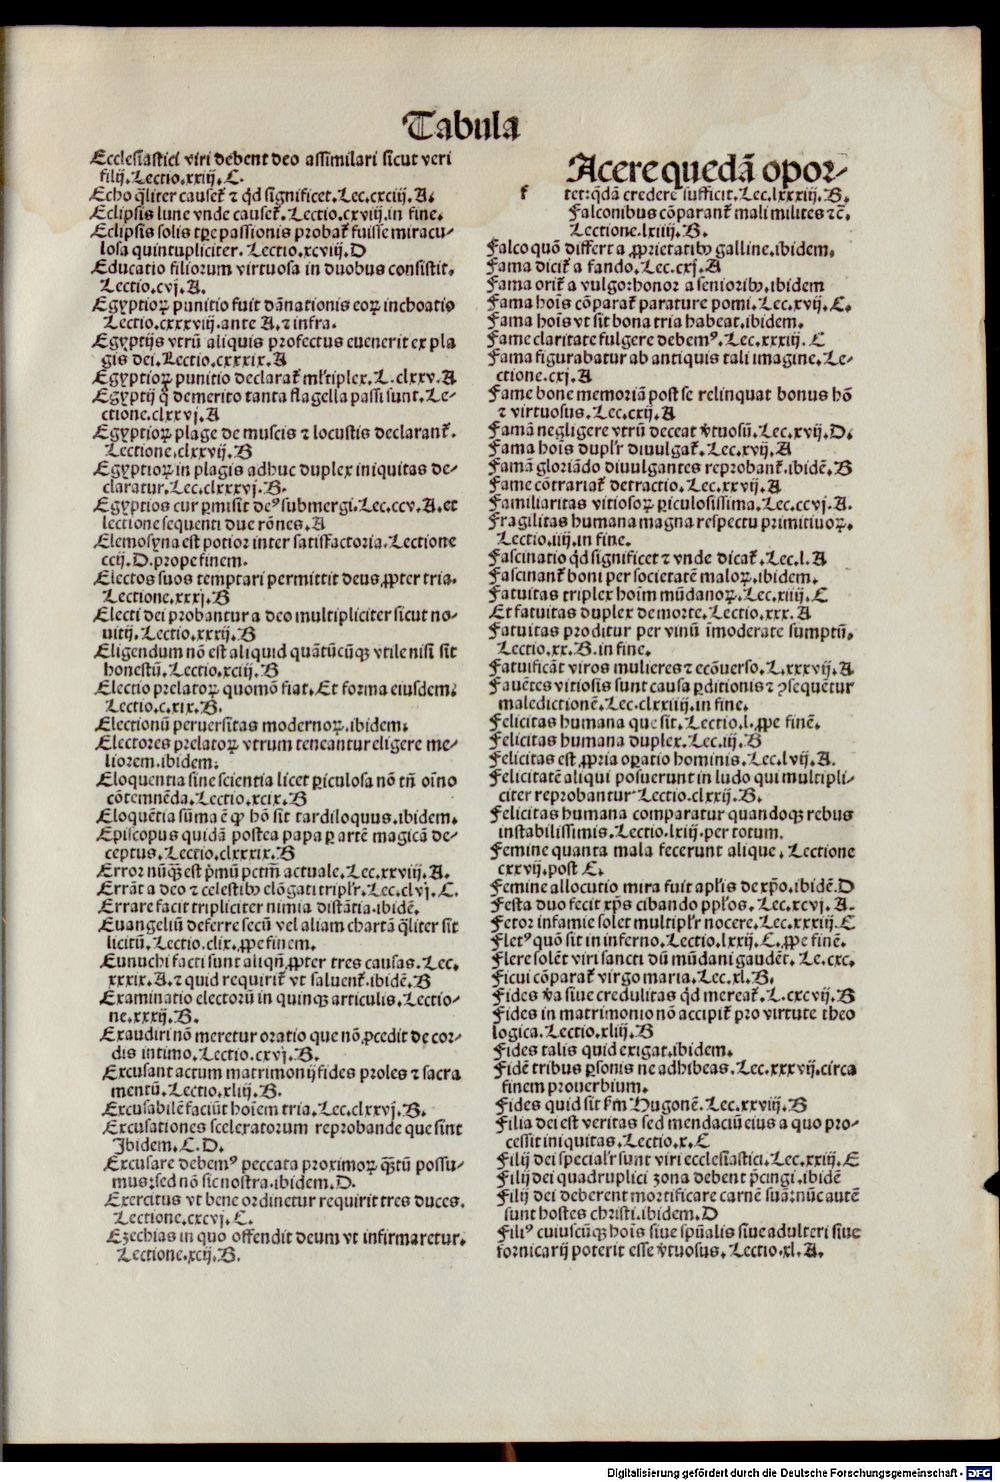 Tabula
Ecclesiastici viri debent deo assimilari sicut veri
filij. Lectio. xxiij. C.
Echo q̃liter causeť ⁊ qd̃ significet. Lec. cxciij. A.
Eclipsis lune vnde causeť. Lectio. cxviij. in fine.
Eclipsis solis tp̃e passionis probať fuisse miracu⸗
losa quintupliciter. Lectio. xcviij. D
Educatio filiorum virtuosa in duobus consistit.
Lectio. cvj. A.
Egyptioꝝ punitio fuit dãnationis eoꝝ inchoatio
Lectio. cxxxviij. ante A. ⁊ infra.
Egyptijs vtrũ aliquis profectus euenerit ex pla
gis dei. Lectio. cxxxix. A
Egyptioꝝ punitio declarať ml̃tiplex. L. clxxv. A
Egyptij q̃ demerito tanta flagella passi sunt. Le⸗
ctione. clxxvj. A
Egyptioꝝ plage de muscis ⁊ locustis declaranť.
Lectione. clxxvij. B
Egyptioꝝ in plagis adhuc duplex iniquitas de⸗
claratur. Lec. clxxxvj. B.
Egyptios cur ꝑmisit deꝰ submergi. Lec. ccv. A. et
lectione sequenti due rões. A
Elemosyna est potior inter satisfactoria. Lectione
ccij. D. prope finem.
Electos suos temptari permittit deus ꝓpter tria.
Lectione. xxxj. B
Electi dei probantur a deo multipliciter sicut no⸗
uitij. Lectio. xxxij. B
Eligendum nõ est aliquid quãtũcũqꝫ vtile nisi sit
honestũ. Lectio. xciij. B
Electio prelatoꝝ quomõ fiat. Et forma eiusdem.
Lectio. c. xix. B.
Electionũ peruersitas modernoꝝ. ibidem.
Electores prelatoꝝ vtrum teneantur eligere me⸗
liorem. ibidem.
Eloquentia sine scientia licet ꝑiculosa nõ tñ oĩno
cõtemnẽda. Lectio. xcix. B
Eloquẽtia sũma ẽ ꝙ hõ sit tardiloquus. ibidem.
Episcopus quidã postea papa ꝑ artẽ magicã de⸗
ceptus. Lectio. clxxxix. B
Error nũqꝫ est pͥmũ pctm̃ actuale. Lec. xxviij. A.
Errãt a deo ⁊ celestibꝰ elõgati tripl̃r. Lec. clvj. C.
Errare facit tripliciter nimia distãtia. ibidẽ.
Euangeliũ deferre secũ vel aliam chartã q̃liter sit
licitũ. Lectio. clix. ꝓpe finem.
Eunuchi facti sunt aliqui ꝓpter tres causas. Lec.
xxxix. A. ⁊ quid requiriť vt saluenť. ibidẽ. B
Examinatio electorũ in quinqꝫ articulis. Lectio⸗
ne. xxxij. B.
Exaudiri nõ meretur oratio que nõ ꝓcedit de cor⸗
dis intimo. Lectio. cxvj. B.
Excusant actum matrimonij fides proles ⁊ sacra
mentũ. Lectio. xliij. B.
Excusabilẽ faciũt hoĩem tria. Lec. clxxvj. B.
Excusationes sceleratorum reprobande que sint
Ibidem. C. D.
Excusare debemꝰ peccata proximoꝝ qꝫtũ possu⸗
mus: sed nõ sic nostra. ibidem. D.
Exercitus vt bene ordinetur requirit tres duces.
Lectione. cxcvj. C.
Ezechias in quo offendit deum vt infirmaretur.
Lectione. xcij. B.
f
Acere quedã opor⸗
tet: q̃dã credere sufficit. Lec. lxxxiij. B.
Falconibus cõparanť mali milites ⁊c̃.
Lectione. lxiiij. B.
Falco quõ differt a ꝓprietatibꝰ galline. ibidem.
Fama diciť a fando. Lec. cxj. A
Fama oriť a vulgo: honor a senioribꝰ. ibidem
Fama hoĩs cõparať parature pomi. Lec. xvij. C.
Fama hoĩs vt sit bona tria habeat. ibidem.
Fame claritate fulgere debemꝰ. Lec. xxxiij. C
Fama figurabatur ab antiquis tali imagine. Le⸗
ctione. cxj. A
Fame bone memoriã post se relinquat bonus hõ
⁊ virtuosus. Lec. cxij. A
Famã negligere vtrũ deceat v̓tuosũ. Lec. xvij. D.
Fama hoĩs dupl̃r diuulgať. Lec. xvij. A
Famã gloriãdo diuulgantes reprobanť. ibidẽ. B
Fame cõtrariať detractio. Lec. xxvij. A
Familiaritas vitiosoꝝ ꝑiculosissima. Lec. ccvj. A.
Fragilitas humana magna respectu primitiuoꝝ.
Lectio. iiij. in fine.
Fascinatio qd̃ significet ⁊ vnde dicať. Lec. l. A
Fascinanť boni per societatẽ maloꝝ. ibidem.
Fatuitas triplex hoĩm mũdanoꝝ. Lec. xiiij. C
Et fatuitas duplex de morte. Lectio. xxx. A
Fatuitas proditur per vinũ ĩmoderate sumptũ.
Lectio. xx. B. in fine.
Fatuificãt viros mulieres ⁊ ecõuerso. L. xxxvij. A
Fauẽtes vitiosis sunt causa ꝑditionis ⁊ ꝯsequẽtur
maledictionẽ. Lec. clxxiiij. in fine.
Felicitas humana que sit. Lectio. l. ꝓpe finẽ.
Felicitas humana duplex. Lec. iij. B
Felicitas est ꝓpria oꝑatio hominis. Lec. lvij. A.
Felicitatẽ aliqui posuerunt in ludo qui multipli⸗
citer reprobantur. Lectio. clxxij. B.
Felicitas humana comparatur quandoqꝫ rebus
instabilissimis. Lectio. lxiij. per totum.
Femine quanta mala fecerunt alique. Lectione
cxxvij. post C.
Femine allocutio mira fuit apl̃is de xp̃o. ibidẽ. D
Festa duo fecit xp̃s cibando ppl̃os. Lec. xcvj. A.
Fetor infamie solet multipl̃r nocere. Lec. xxxiij. C
Fletꝰ quõ sit in inferno. Lectio. lxxij. C. ꝓpe finẽ.
Flere solẽt viri sancti dũ mũdani gaudẽt. Le. cxc.
Ficui cõparať virgo maria. Lec. xl. B.
Fides v̓a siue credulitas qd̃ mereať. L. cxcvij. B
Fides in matrimonio nõ accipiť pro virtute theo
logica. Lectio. xliij. B
Fides talis quid exigat. ibidem.
Fidẽ tribus ꝑsonis ne adhibeas. Lec. xxxvij. circa
finem prouerbium.
Fides quid sit fm̃ Hugonẽ. Lec. xxviij. B
Filia dei est veritas sed mendaciũ eius a quo pro⸗
cessit iniquitas. Lectio. x. C
Filij dei special̃r sunt viri ecclesiastici. Lec. xxiij. E
Filij dei quadruplici zona debent p̃cingi. ibidẽ
Filij dei deberent mortificare carnẽ suã: nũc autẽ
sunt hostes christi. ibidem. D
Filiꝰ cuiuscũqꝫ hoĩs siue spũalis siue adulteri siue
fornicarij poterit esse v̓tuosus. Lectio. xl. A.
Digitalisierung gefördert durch die Deutsche Forschungsgemeinschaft - DFG